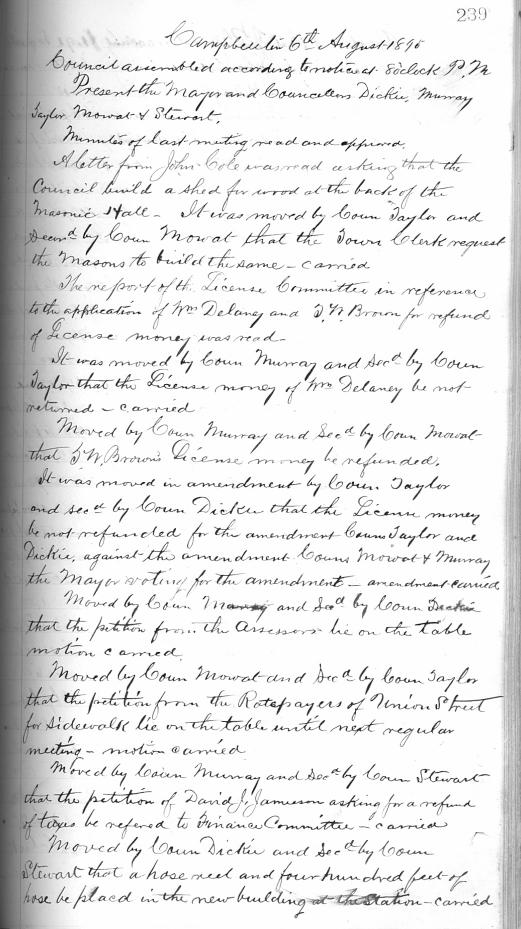 239
Campbellton 6th August 1895
Council assembled according to notice at 8 oclock P.M
Present the Mayor and Councellors Dickie, Murray
Taylor Mowat & Stewart.
Minutes of last meeting read and approved.
A letter from John Cole was read asking that the
Council build a shed for wood at the back of the
Masonic Hall - It was moved by Coun Taylor and
Secd by Coun Mowat that the Town Clerk request
the Masons to build the same - carried
The report of the License Committee in reference
to the application of Wm Delaney and Brown for refund
of License money was read -
It was moved by Coun Murray and Secd by Coun
Taylor that the License money of Wm Delaney be not
returned - carried
Moved by Coun Murray and Secd by Coun Mowat
that Brown's License money be refunded.
It was moved in amendment by Coun Taylor
and secd by Coun Dickie that the License money
be not refunded for the amendment Couns Taylor and
Dickie, against the amendment Couns Mowat & Murray
the Mayor voting for the amendment - amendment carried
Moved by Coun and Secd by Coun Dickie
that the petition from the Assessors lie on the table
motion carried.
Moved by Coun Mowat and Secd by Coun Taylor
that the petition from the Ratepayers of Union Street
for sidewalk lie on the table until next regular
meeting - motion carried
Moved by Coun Murray and Secd by Coun Stewart
that the petition of David J. Jamieson asking for a refund
of taxes be refered to Finance Committee - carried
Moved by Coun Dickie and Secd by Coun
Stewart that a hose reel and four hundred feet of
hose be placed in the new building at the station - carried